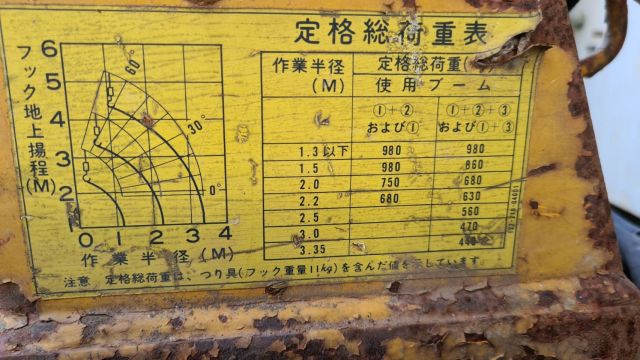 定格総荷重表
フック地上揚程(M)
6
5
4
3
2
1
60°
30°
0°
0 1 2 3 4
作業半径(M)
作業半径(M) 定格総荷重(
使用ブーム
①+② および① ①+②+③ および①+③
1.3以下 980 980
1.5 980 860
2.0 750 680
2.2 680 630
2.5 560
3.0 470
3.35
注意 定格総荷重は、つり具(フック重量11kg)を含んだ値を示しています